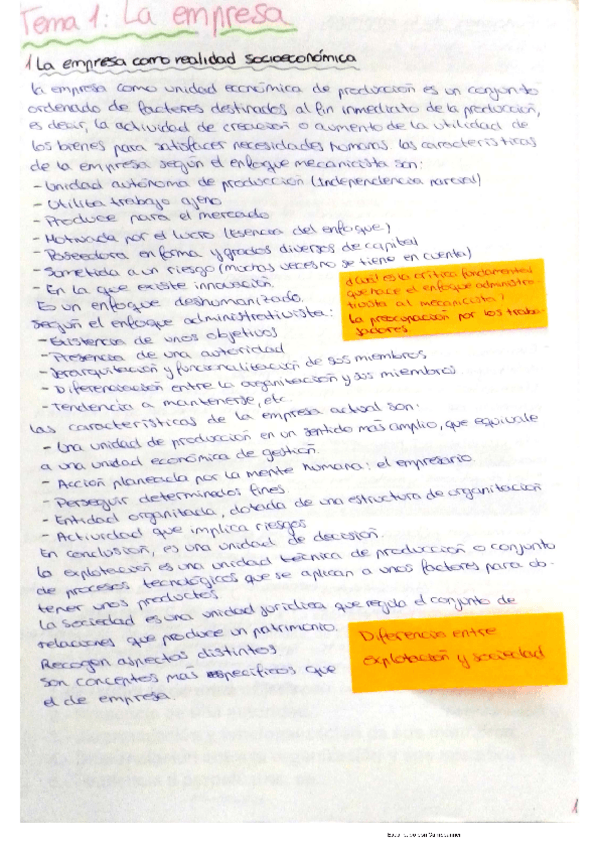 Tema 1: La empresa
1 La empresa como realidad socioeconómica
La empresa como unidad económica de producción es un conjunto
ordenado de factores destinados al fin inmediato de la producción,
es decir, la actividad de creación o aumento de la utilidad de
los bienes para satisfacer necesidades humanas las características
de la empresa según el enfoque mecanicista son:
- Unidad autónoma de producción (Independencia parcial)
- Utiliza trabajo ajeno
- Produce para el mercado
- Motivada por el lucro (esencia del enfoque)
- Poseedora en forma y grados diversos de capital
- Sometida a un riesgo (muchas veces no se tiene en cuenta)
- En la que existe innovación.
Es un enfoque deshumanizado.
Según el enfoque administrativista:
- Existencia de unos objetivos
- Presencia de una autoridad
- Jerarquización y funcionalización de sus miembros
- Diferenciación entre la organización y sus miembros
- Tendencia a mantenerse, etc.
¿Cuál es la crítica fundamental
que hace el enfoque administra-
tivista al mecanicista?
La preocupación por los traba-
jadores.
Las características de la empresa actual son:
- Una unidad de producción en un sentido más amplio, que equivale
a una unidad económica de gestión.
- Acción planeada por la mente humana: el empresario.
- Perseguir determinados fines.
- Entidad organizada, dotada de una estructura de organización
- Actividad que implica riesgos
En conclusión, es una unidad de decisión.
La explotación es una unidad técnica de producción o conjunto
de procesos tecnológicos que se aplican a unos factores para ob-
tener unos productos
La sociedad es una unidad jurídica que regula el conjunto de
relaciones que produce un patrimonio.
Recogen aspectos distintos
son conceptos más específicos que
el de empresa.
Diferencia entre
explotación y sociedad
1